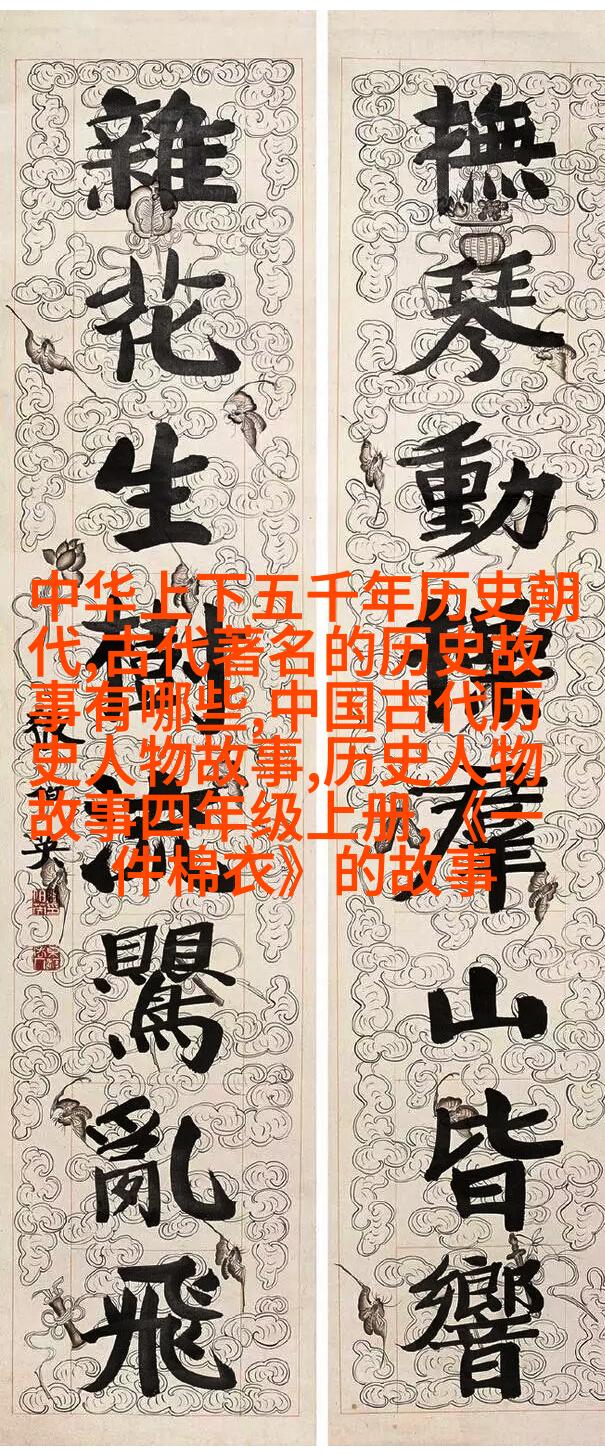 撫琴動操羣山皆響
雜花生樹流鸎亂飛
中华上下五千年历史朝
代,古代著名的历史故
事有哪些,中国古代历
史人物故事,历史人物
故事四年级上册,《一
件棉衣》的故事